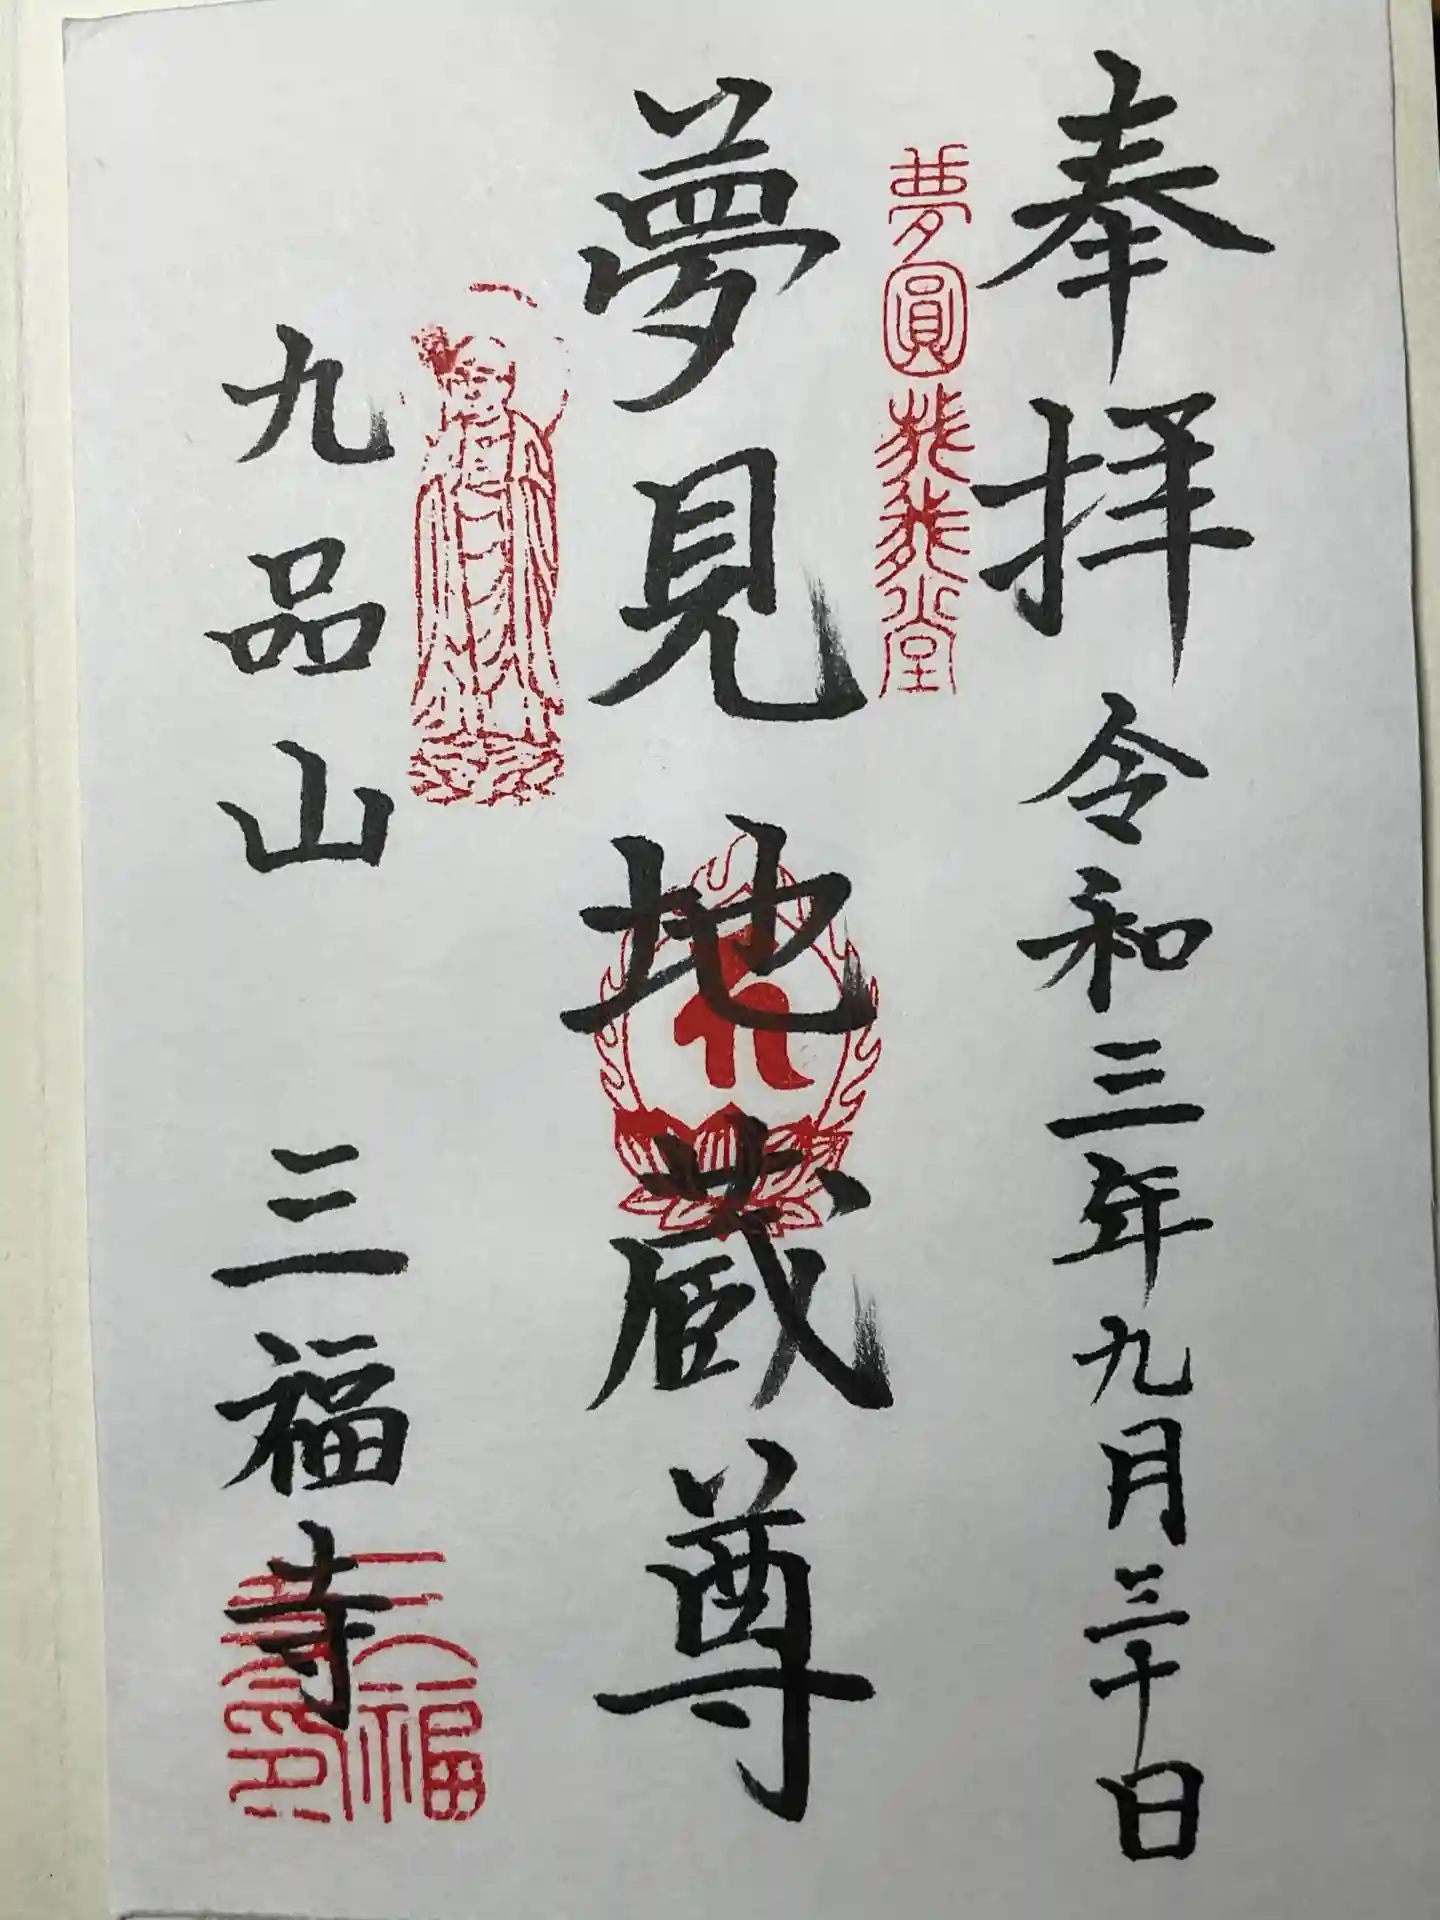 奉拝 令和三年九月三十日
夢見地蔵尊
九品山 三福寺
三福寺印